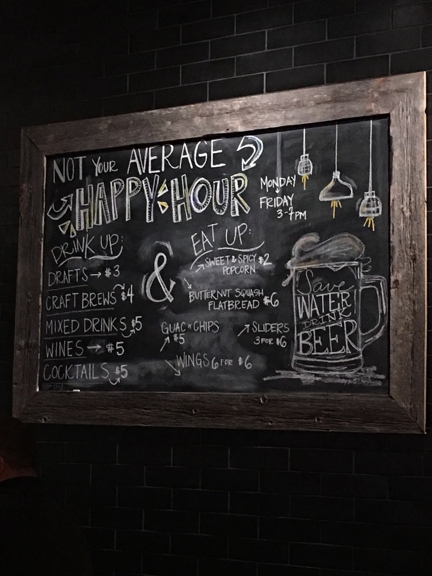 NOT YOUR AVERAGE
HAPPY HOUR
MONDAY
FRIDAY
3-7PM
DRINK UP:
DRAFTS → $3
CRAFT BREWS $4
MIXED DRINKS $5
WINES → $5
COCKTAILS $5
&
EAT UP:
SWEET & SPICY $2
POPCORN
BUTTERNUT SQUASH
FLATBREAD $6
GUAC N CHIPS
$5
SLIDERS
3 FOR $6
WINGS 6 FOR $6
SAVE
WATER
DRINK
BEER